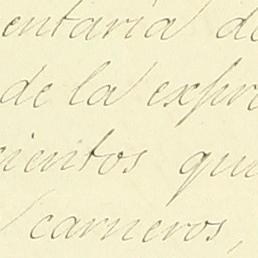 entaria de
de la expre
cientos que
carneros,